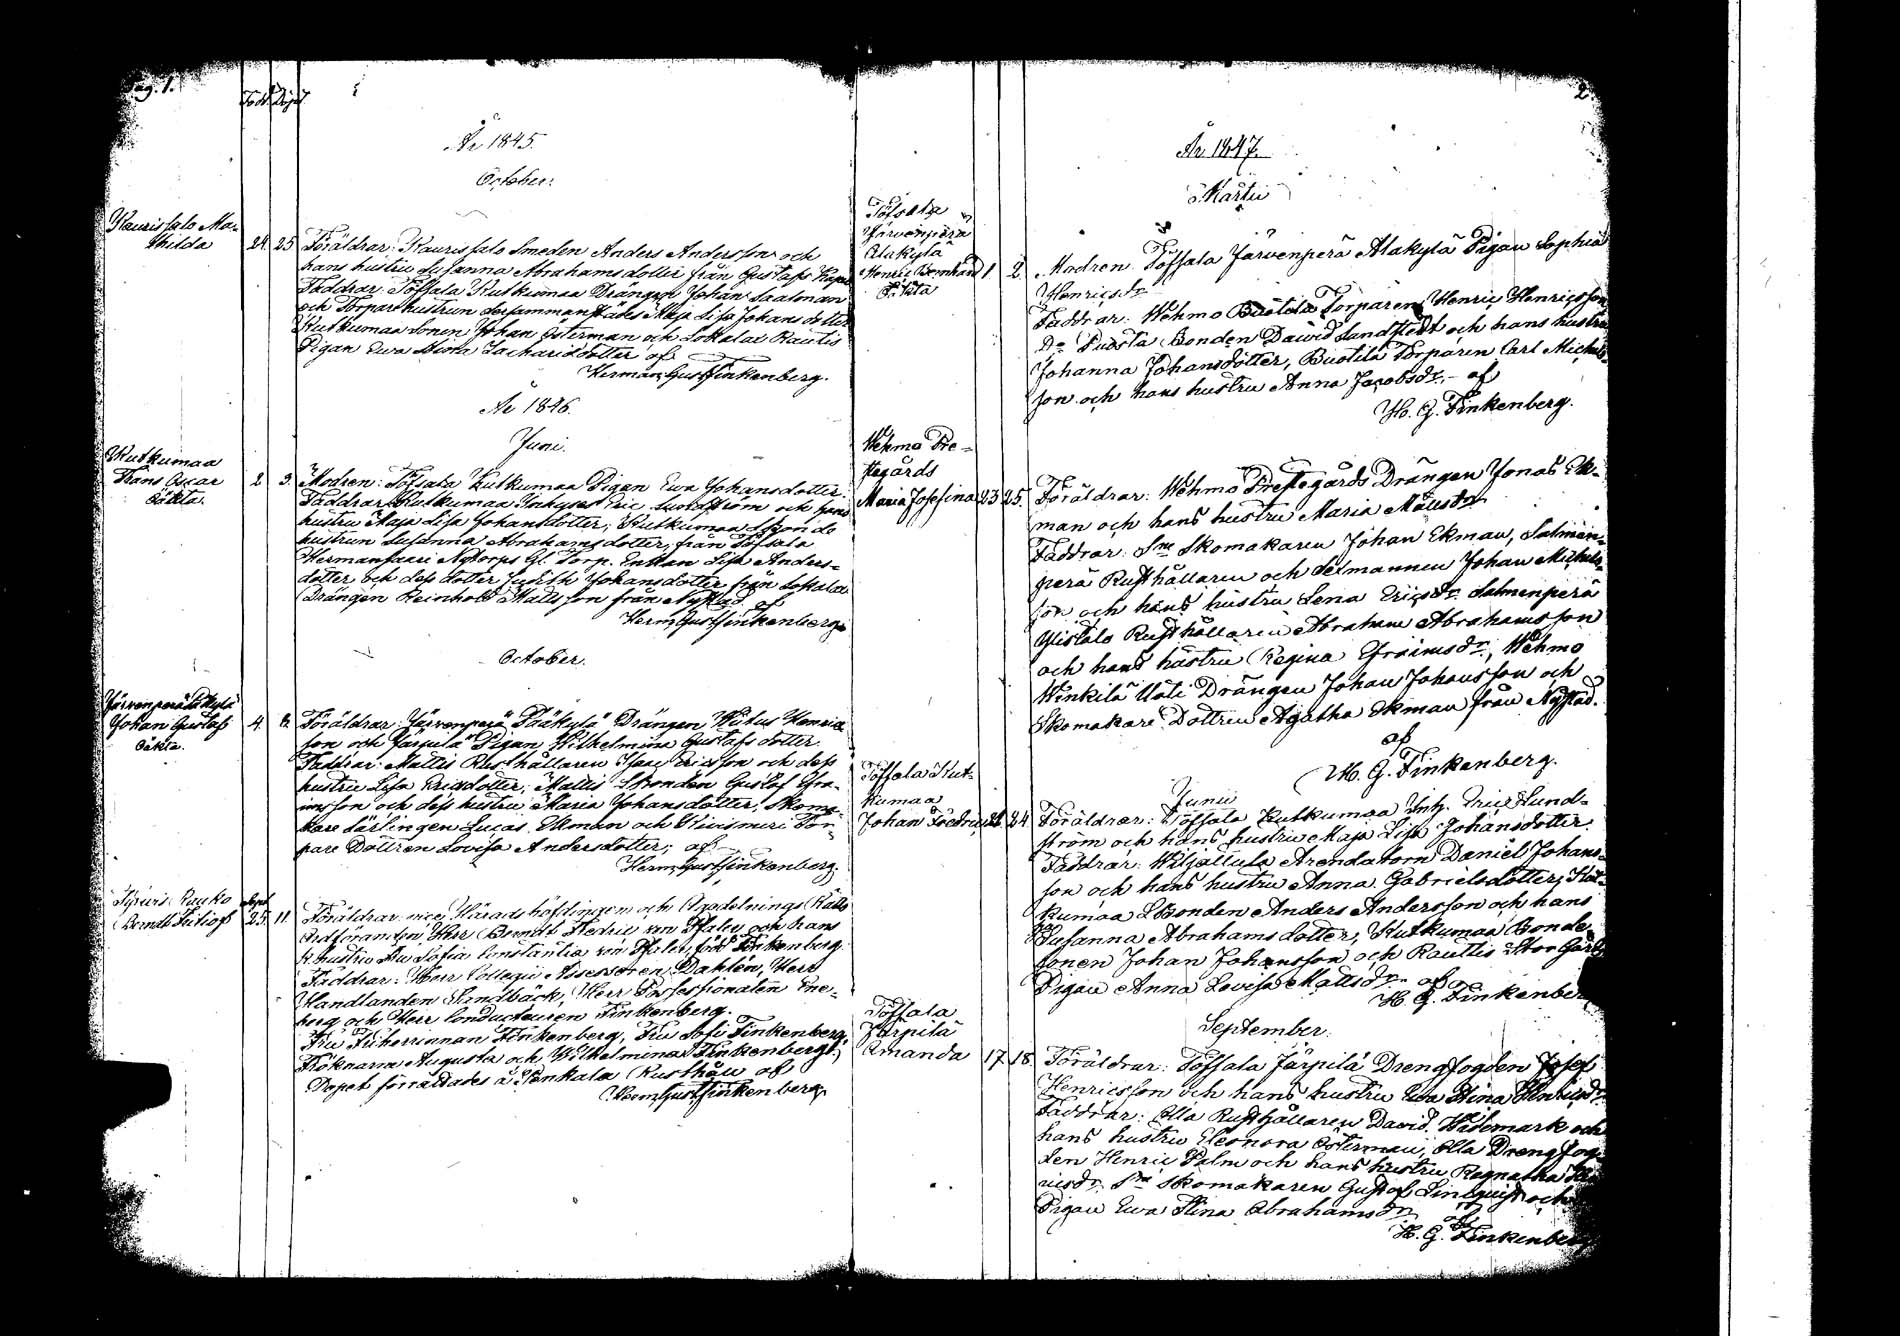 Pag. 1.
Född. Döpt.
År 1845.
October.
Kaurissalo Ma-
thilda
24. 25 Föräldrar: Kaurissalo Smeden Anders Andersson och
hans hustru Susanna Abrahamsdotter från Gustafs
Faddrar: Töfsala Kutkumaa Drängen Johan Saalman
och Torpare hustrun dersammanstädes Maja Lisa Johansdotter
Kutkumaa Sonen Johan Österman och Lokalax Rautis
Pigan Ewa Stina Zachariedotter af
Herman Gust Finkenberg.
År 1846.
Juni.
Kutkumaa
Frans Oscar
Oäkta.
2 3. Modren: Töfsala Kutkumaa Pigan Ewa Johansdotter.
Faddrar Kutkumaa Inhyses Eric Lundström och hans
hustru Maja Lisa Johansdotter, Kutkumaa
hustrun Susanna Abrahamsdotter, från Töfsala
Hermansaari Nytorps Gl. Torp. Enkan Lisa Anders-
dotter och dess dotter Judith Johansdotter från Lokalax
Drängen Reinhold Mattsson från Nystad af
Herm Gust Finkenberg
October.
Järvenperä Pääkylä
Johan Gustaf
Oäkta.
4. 6. Föräldrar: Järvenperä Pääkylä Drängen Vitus Henrics
son och Järpilä Pigan Wilhelmina Gustafsdotter.
Faddrar: Mattis Rusthållaren Isaac Ericsson och dess
hustru Lisa Ericsdotter, Mattis Bonden Gustof Efra-
imsson och dess hustru Maria Johansdotter, Skoma-
kare Lärlingen Lucas Ekman och Tor-
pare Dottren Lovisa Andersdotter; af
Herm Gust Finkenberg.
Pauko
Berndt Fritiof
Sept.
25. 11. Föräldrar: vice Häradshöfdingen och Afdelnings Rätts
Ordföranden Herr Berndt Fredric von Pfaler och hans
K. hustru Fru Sofia Constantia von Pfaler, född Finkenberg.
Faddrar: Herr Collegii Assessoren Dahlén, Herr
Handlanden Sandbäck, Herr Possessionaten Ene-
berg och Herr Conducteuren Finkenberg.
Fru Friherrinnan Finkenberg, Fru Sofi Finkenberg,
Fröknarna Augusta och Wilhelmina Finkenberg;
Dopet förrättades å Pankala Rusthåll af
Herm Gust Finkenberg.
2.
År 1847.
Martii
Töfsala
Järvenperä
Alakylä
Henric Bernhard
Oäkta
1 2. Modren: Töfsala Järvenperä Alakylä Pigan Sophia
Henricsdr
Faddrar: Wehmo Buotila Torparen Henric Henricsson
Do Puosta Bonden David Sandstedt och hans hustru
Johanna Johansdotter, Buotila Torparen Carl Michels-
son och hans hustru Anna Jacobsdr. af
H. G. Finkenberg.
Wehmo Pre-
stegårds
Maria Josefina
23 25. Föräldrar: Wehmo Prestegårds Drängen Jonas Ek-
man och hans hustru Maria Mattsdr
Faddrar: Sne Skomakaren Johan Ekman, Salmen-
perä Rusthållaren och Sexmannen Johan Michels-
son och hans hustru Lena Ericsdr Salmenperä
Ylistalo Rusthållaren Abraham Abrahamsson
och hans hustru Regina Efraimsdr, Wehmo
Winkilä Uoti Drängen Johan Johansson och
Skomakare Dottren Agatha Ekman från Nystad.
af
H. G. Finkenberg.
Junii
Töfsala Kut-
kumaa
Johan Fredric
22 24 Föräldrar: Töfsala Kutkumaa Inh. Eric Lund-
ström och hans hustru Maja Lisa Johansdotter.
Faddrar: Wiljattula Arendatorn Daniel Johans-
son och hans hustru Anna Gabrielsdotter, Kut-
kumaa Bonden Anders Andersson och hans
Susanna Abrahamsdotter, Kutkumaa Bonde
sonen Johan Johansson och Rautis Storgårds
Pigan Anna Lovisa Mattsdr af
H. G. Finkenberg
September.
Töfsala
Järpilä
Amanda
17 18. Föräldrar: Töfsala Järpilä Drengfogden Josef
Henricsson och hans hustru Ewa Stina Henricsdr
Faddrar: Olla Rusthållaren David Widemark och
hans hustru Eleonora Österman, Olla Drengfog-
den Henric Palm och hans hustru Regnatha Hen
ricsdr. Sne Skomakaren Gustof Lindqvist och
Pigan Ewa Stina Abrahamsdr
af
H. G. Finkenberg